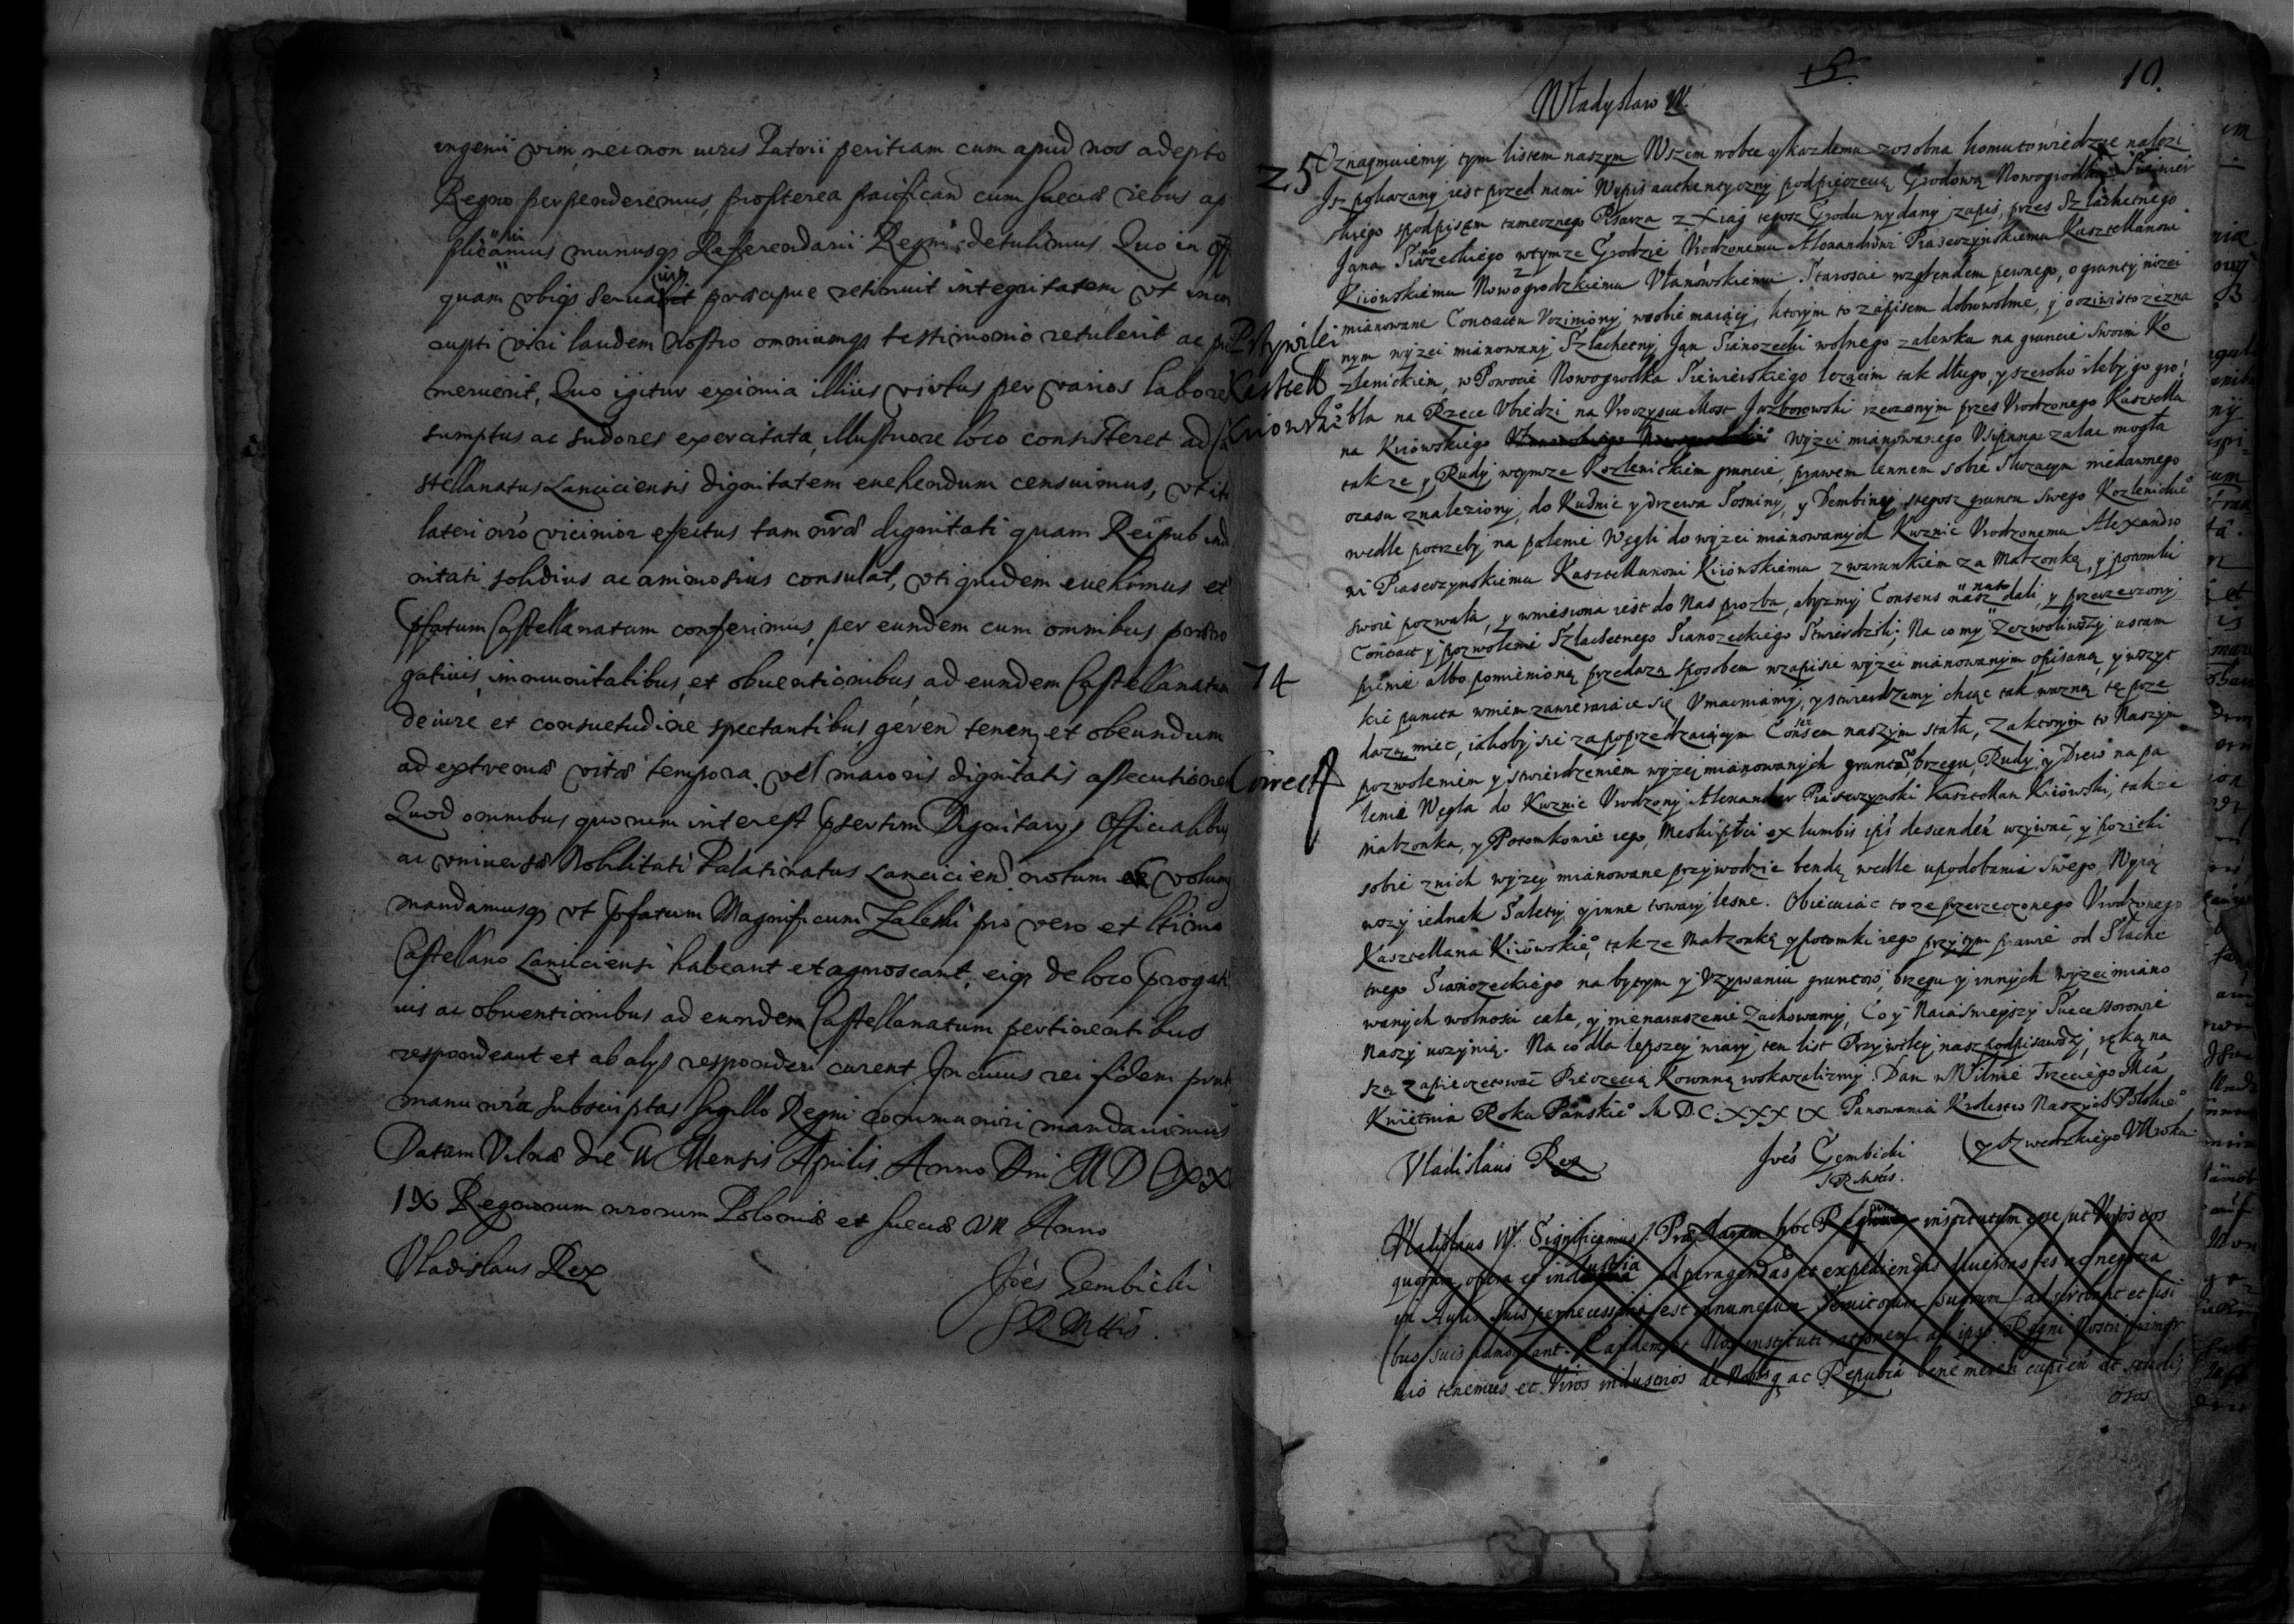 ingenii vim, nec non iuris Patrii peritiam cum apud nos adepto
Regno perpenderemus, propterea pacificand cum Suecis rebus ap
plicauimus munusq Referendarii Regni detulimus. Quo in off
quam vbiq seruauit præcipue retinuit integritatem vt incor
rupti viri laudem nostro omniumq testimonio retulerit ac pro
meruerit, Quo igitur eximia illius virtus per varios labores
sumptus ac sudores exercitata, illustriore loco consisteret ad Ca
stellanatus Lanciciensis dignitatem euehendum censuimus, vt
lateri nro vicinior effectus tam nræ dignitati quam Reipub
nitati solidius ac animosius consulat, vti quidem euehimus et
pfatum Castellanatum conferimus, per eundem cum omnibus præro
gatiuis, immunitatibus, et obuentionibus, ad eundem Castellanatum
de iure et consuetudine spectantibus, geren tenen, et obeundum
ad extrema vitæ tempora, vel maioris dignitatis assecutionem
Quod omnibus quorum interest psertim Dignitarys Officialibus
ac vniuersæ Nobilitati Palatinatus Lanciciens notum volumus
mandamusq vt pfatum Magnificum Zaleski pro vero et ltimo
Castellano Lanciciensi habeant et agnoscant, eiq de loco prærogati
uis ac obuentionibus ad eundem Castellanatum pertinentibus
respondeant et ab alys responderi curent. In cuius rei fidem pnt
manu nra subscriptas sigillo Regni communiri mandauimus
Datum Vilnæ die III Mensis Aprilis. Anno Dni M D C XXX
IX Regnorum nrorum Poloniæ et Sueciæ VII Anno
Vladislaus Rex
Joës Gembicki
S R Mttis.
15.
10.
Władysław IV.
25
Oznaymuiemy tym listem naszym Wszem wobec y kazdemu zosobna komu to wiedziec nalezi
Isz pokazany iest przed nami Wypis authentyczny podpieczecią Grodową Nowogrodka Siewier
skiego spodpisem tamecznego Pisarza z Xiąg tegosz Grodu wydany zapis, przes Szlachetnego
Jana Sianozeckiego wtymze Grodzie Vrodzonemu Alexandrowi Piaseczynskiemu Kasztellanowi
Kiiowskiemu Nowogrodzkiemu Vlanowskiemu Staroscie wzglendem pewnego, o grunty nizei
mianowane Contractu Vcziniony wsobie maiący, ktorym to zapisem dobrowolnie, y oczewisto zezna
Przywilei
nym wyzei mianowany Szlachetny Jan Sianozecki wolnego zalewku na gruncie Swoim Ko
Kasztell
zlenickiem, w Powocie Nowogrodka Siewierskiego lezącim tak długo, y szeroko ileby go gro
Kiiowski°
bla na Rzece Vbiedzi na Vroczyscu Most Jazborowski rzeczanym przes Vrodzonego Kasztella
na Kiiowskiego wyzei mianowanego Vsipana zalac mogła
takze y Rudy wtymze Kozlenickiem gruncie, prawem lennem sobie sluzacym niedawnego
czasu znaleziony, do Kuznic y drzewa Sosniny, y Dembiny stegosz gruntu swego Kozlenickie°
wedle potrzeby na palenie Węgli do wyzei mianowanych Kuznic Vrodzonemu Alexandro
wi Piaseczynskiemu Kasztellanowi Kiiowskiemu z warunkiem za Małzonką, y potomki
swoie pozwala, y wniesiona iest do Nas prozba, abysmy Consens nasz nato dali, y przerzeczony
Contract y pozwolenie Szlachetnego Sianozeckiego Stwierdzili; Na co my Zezwoliwszy ustam
74
pienie albo pomienioną przedazą sposobem wzapisie wyzei mianowanym opisaną, y wszyt
kie puncta wniem zawieraiące się Vmacniamy, y stwierdzamy chcąc tak wazną tę prze
dazą miec, iakoby sie za poprzedzaiącym Consensem naszym stała, Zaktorym to Naszym
Correct
pozwoleniem y stwierdzeniem wyzei mianowanych gruntow brzegu, Rudy, y Drew na pa
lenie Węgla do Kuznic Vrodzony Alexander Piaseczynski Kasztellan Kiiowski, takze
małzonka, y Potomkowie iego, Meskiplci ex lumbis ips descenden uzywac, y pozitki
sobie znich wyzey mianowane przywodzic bendą wedle upodobania swego. Wyią
wszy iednak Saletry y inne towary lesne. Obiecuiąc to ze przerzeczonego Vrodzonego
Kasztellana Kiiowskie°, takze Małzonkę y potomki iego przy tym prawie od Slache
tnego Sianozeckiego nabytym y Vzywaniu gruntow, brzegu y innych wyzei miano
wanych wolnosci cale, y nienaruszenie Zachowamy, Co y Naiasnieyszy Successorowie
Naszy uczynią. Na co dla lepszey wiary ten list Przywiley nasz podpisawszy ręką na
szą zapieczetowac Pieczecią Koronną roskazalismy. Dan w Wilnie Trzeciego Dnia
Kwietnia Roku Panskie° M DC XXX IX Panowania Krolestw Naszych Polskie°
y Szwedzkiego VII roku
Vladislaus Rex
Joës Gembicki
S R Mttis.
Vladislaus IV. Significamus. Præclarum hoc Regnantium institutum esse, ut Viros eos
quorum opera et industria ad peragendas et expediendas diuersas res ac negotia
in Aulis suis pernecessaria est in numerum Seruitorum suorum adscribant et sibi
bus suis admoueant. Eandem et Nos instituti rationem ab ipso Regni Nostri primor
dio tenemus et Viros industrios de Nobisq ac Republica bene mereri cupien et studii
osos